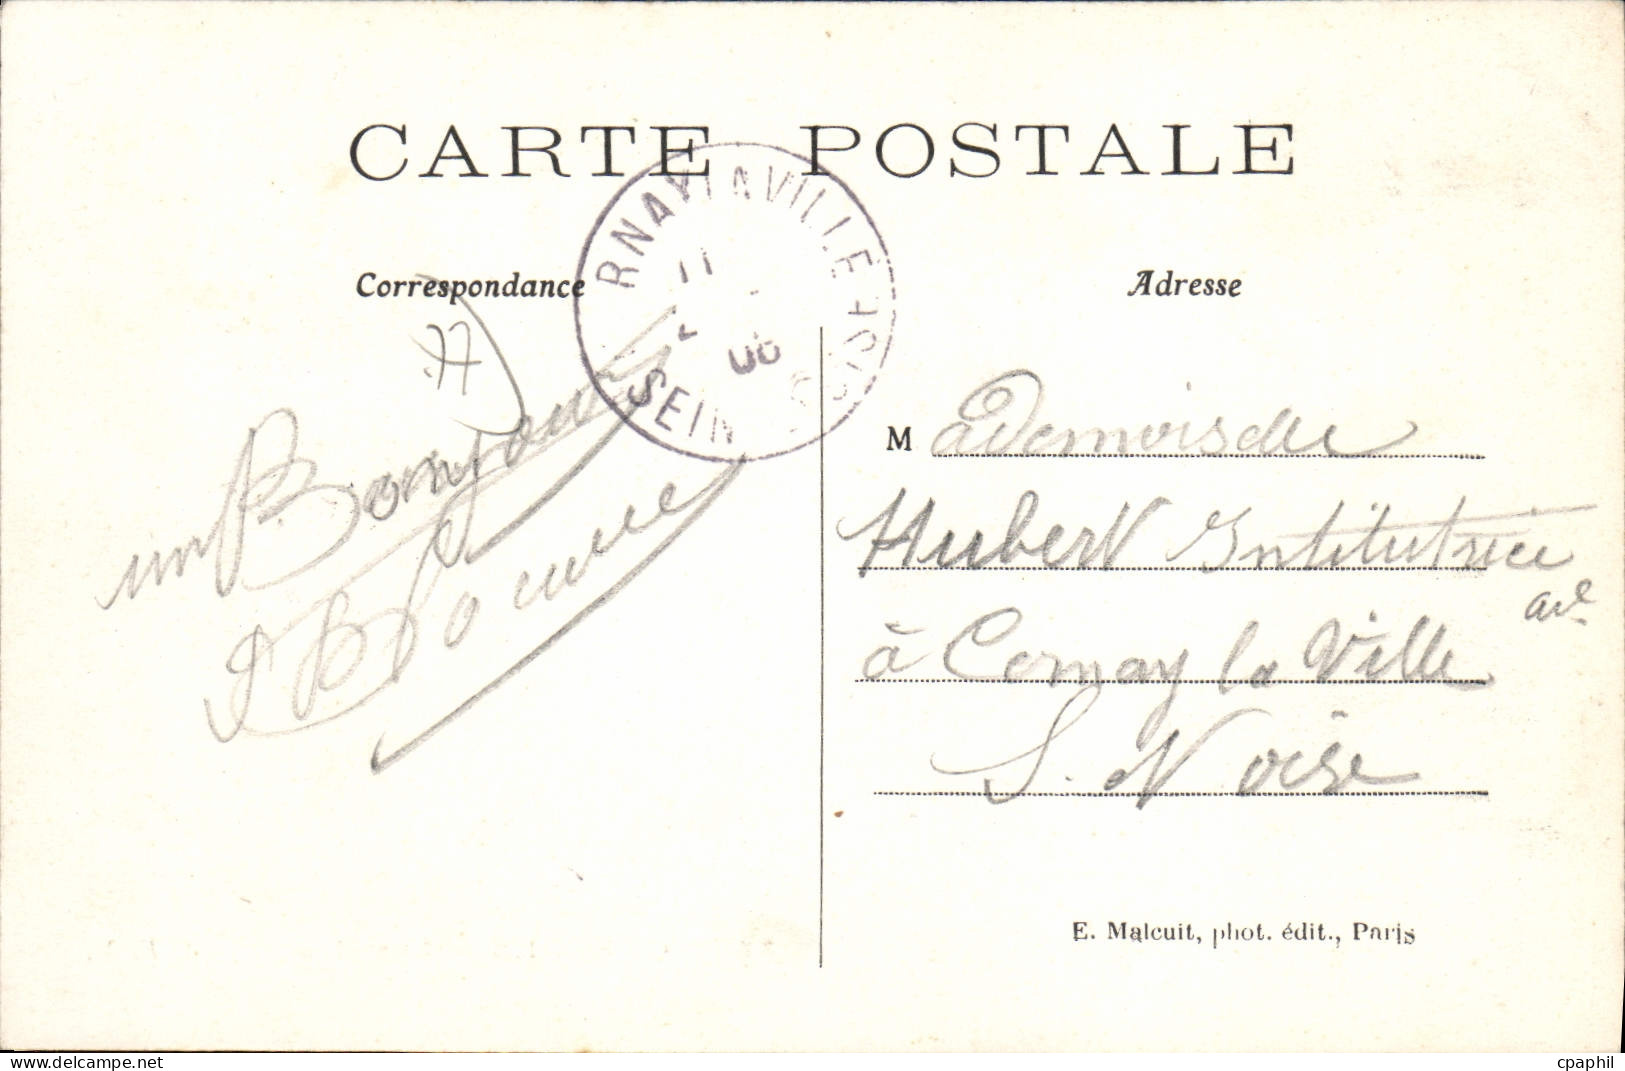 CARTE POSTALE
RNAY LA VILLE
11
06
SEIN
Correspondance
Adresse
77
un Bonjour
Mademoiselle
Hubert Institutrice
à Cernay la Ville
S. Noise
E. Malcuit, phot. édit., Paris
delcampe.net
cpaphil